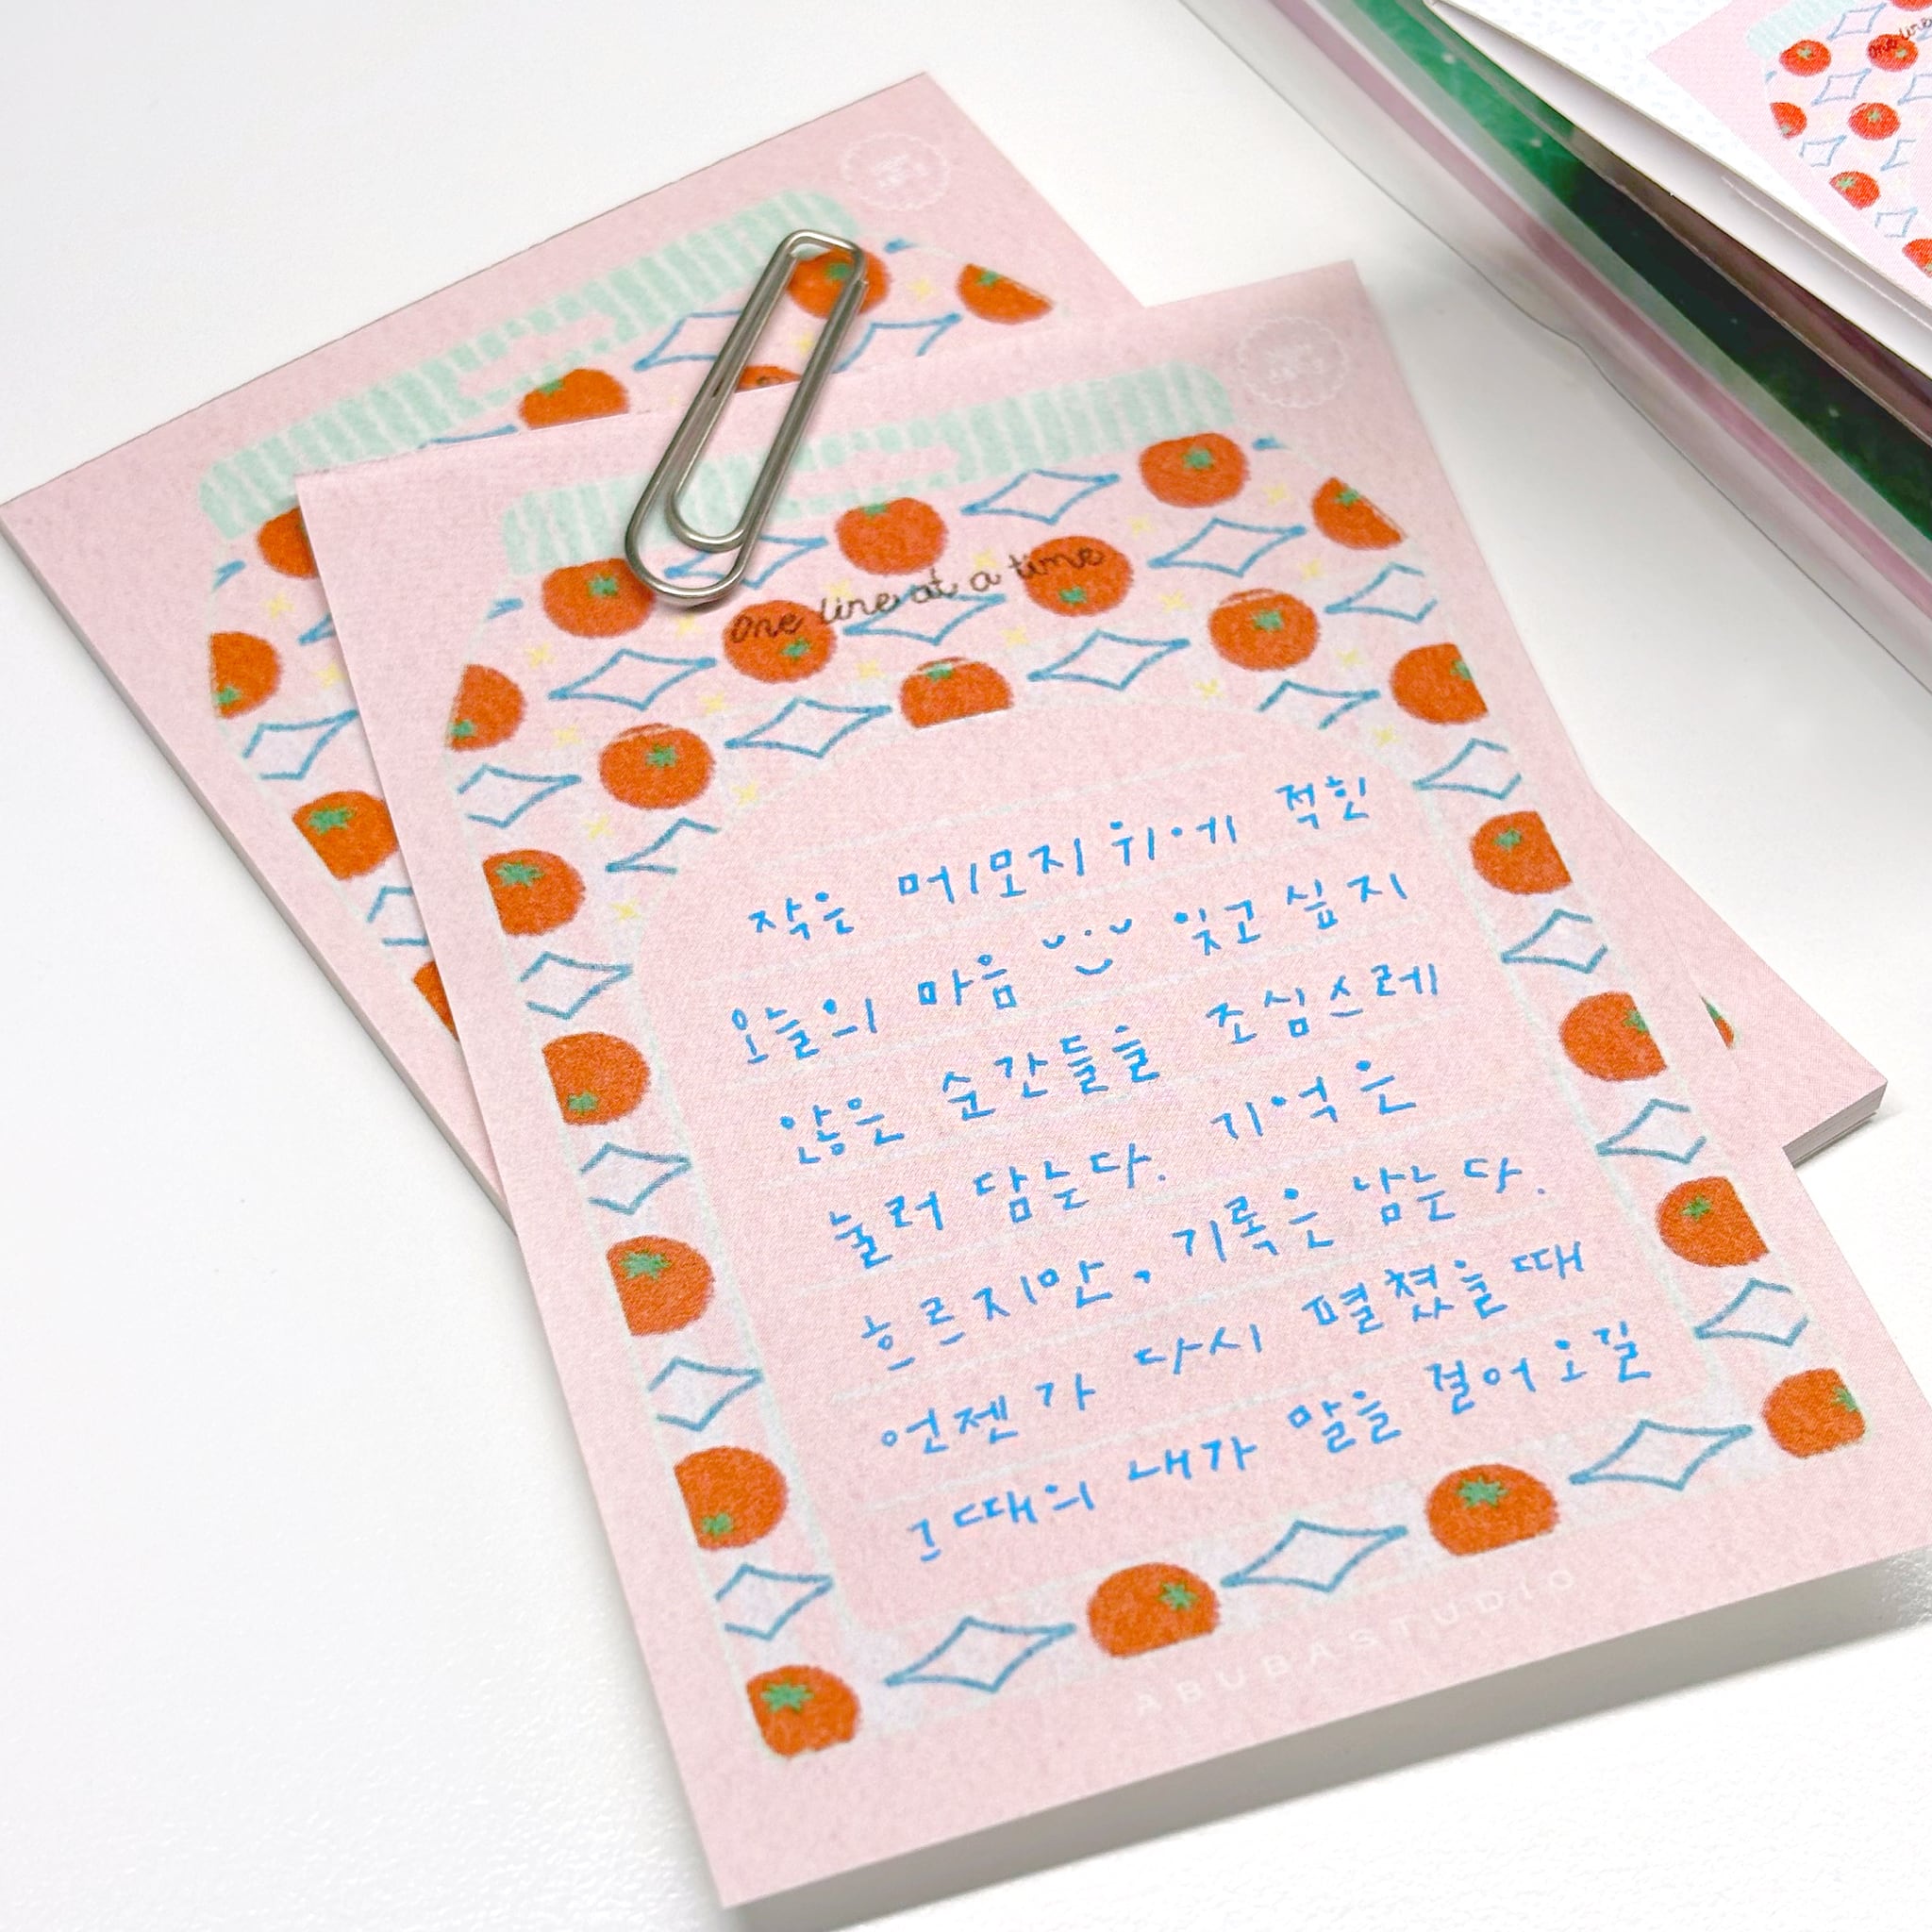 One line at a time
작은 메모지 위에 적힌
오늘의 마음 잊고 싶지
않은 순간들을 조심스레
눌러 담는다. 기억은
흐르지만, 기록은 남는다.
언젠가 다시 펼쳤을 때
그때의 내가 말을 걸어오길
ABUBASTUDIO
One line